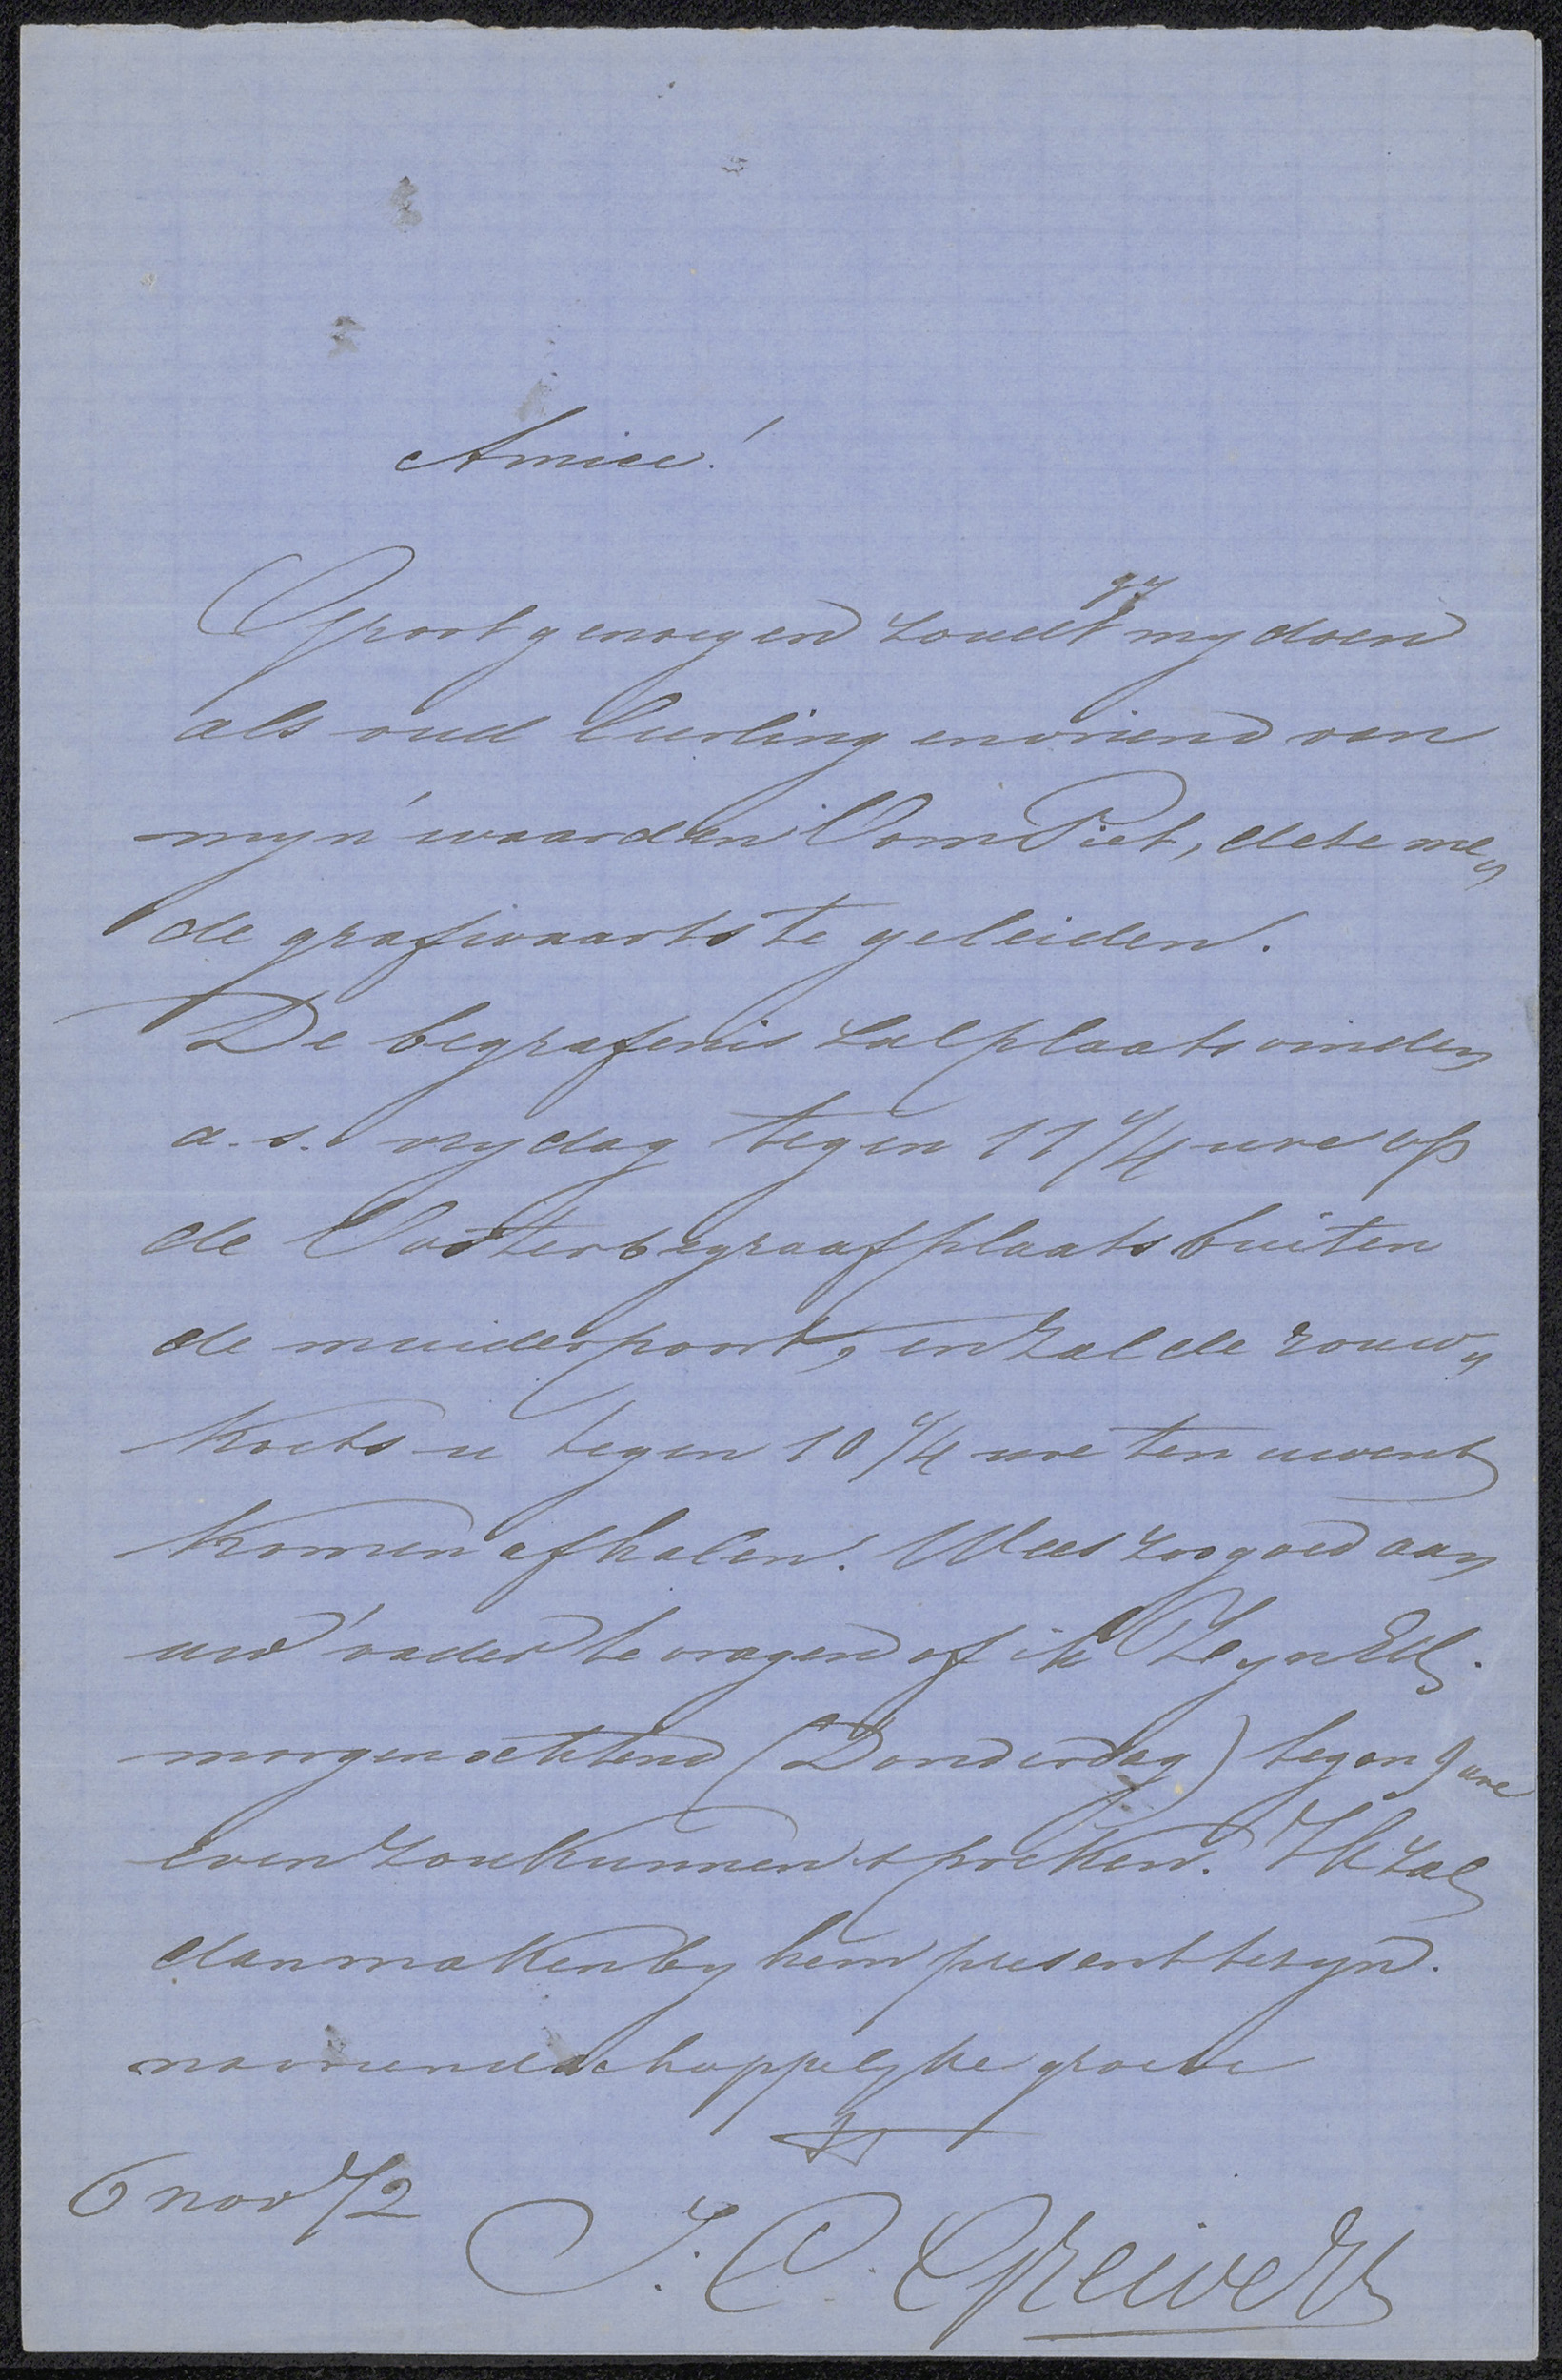 Amice!
Groot genoegen zoudt gy my doen
als oud leerling en vriend van
myn waarden Oom Piet, dete me
de grafwaarts te geleiden.
De begrafenis zal plaats vinden
a.s. vrydag tegen 11 1/4 ure op
de Oosterbegraafplaats buiten
de muiderpoort, en zal de rouw
koets u tegen 10 1/4 ure ten uwent
komen afhalen. Wees zoo goed aan
uw vader te vragen of ik Zyn Ed.
morgen ochtend (Donderdag) tegen 9 ure
even zou kunnen spreken. Ik zal
dan maken by hem present te zyn.
na vriendschappelyke groete
6 nov 72
J. C. Greive Jr